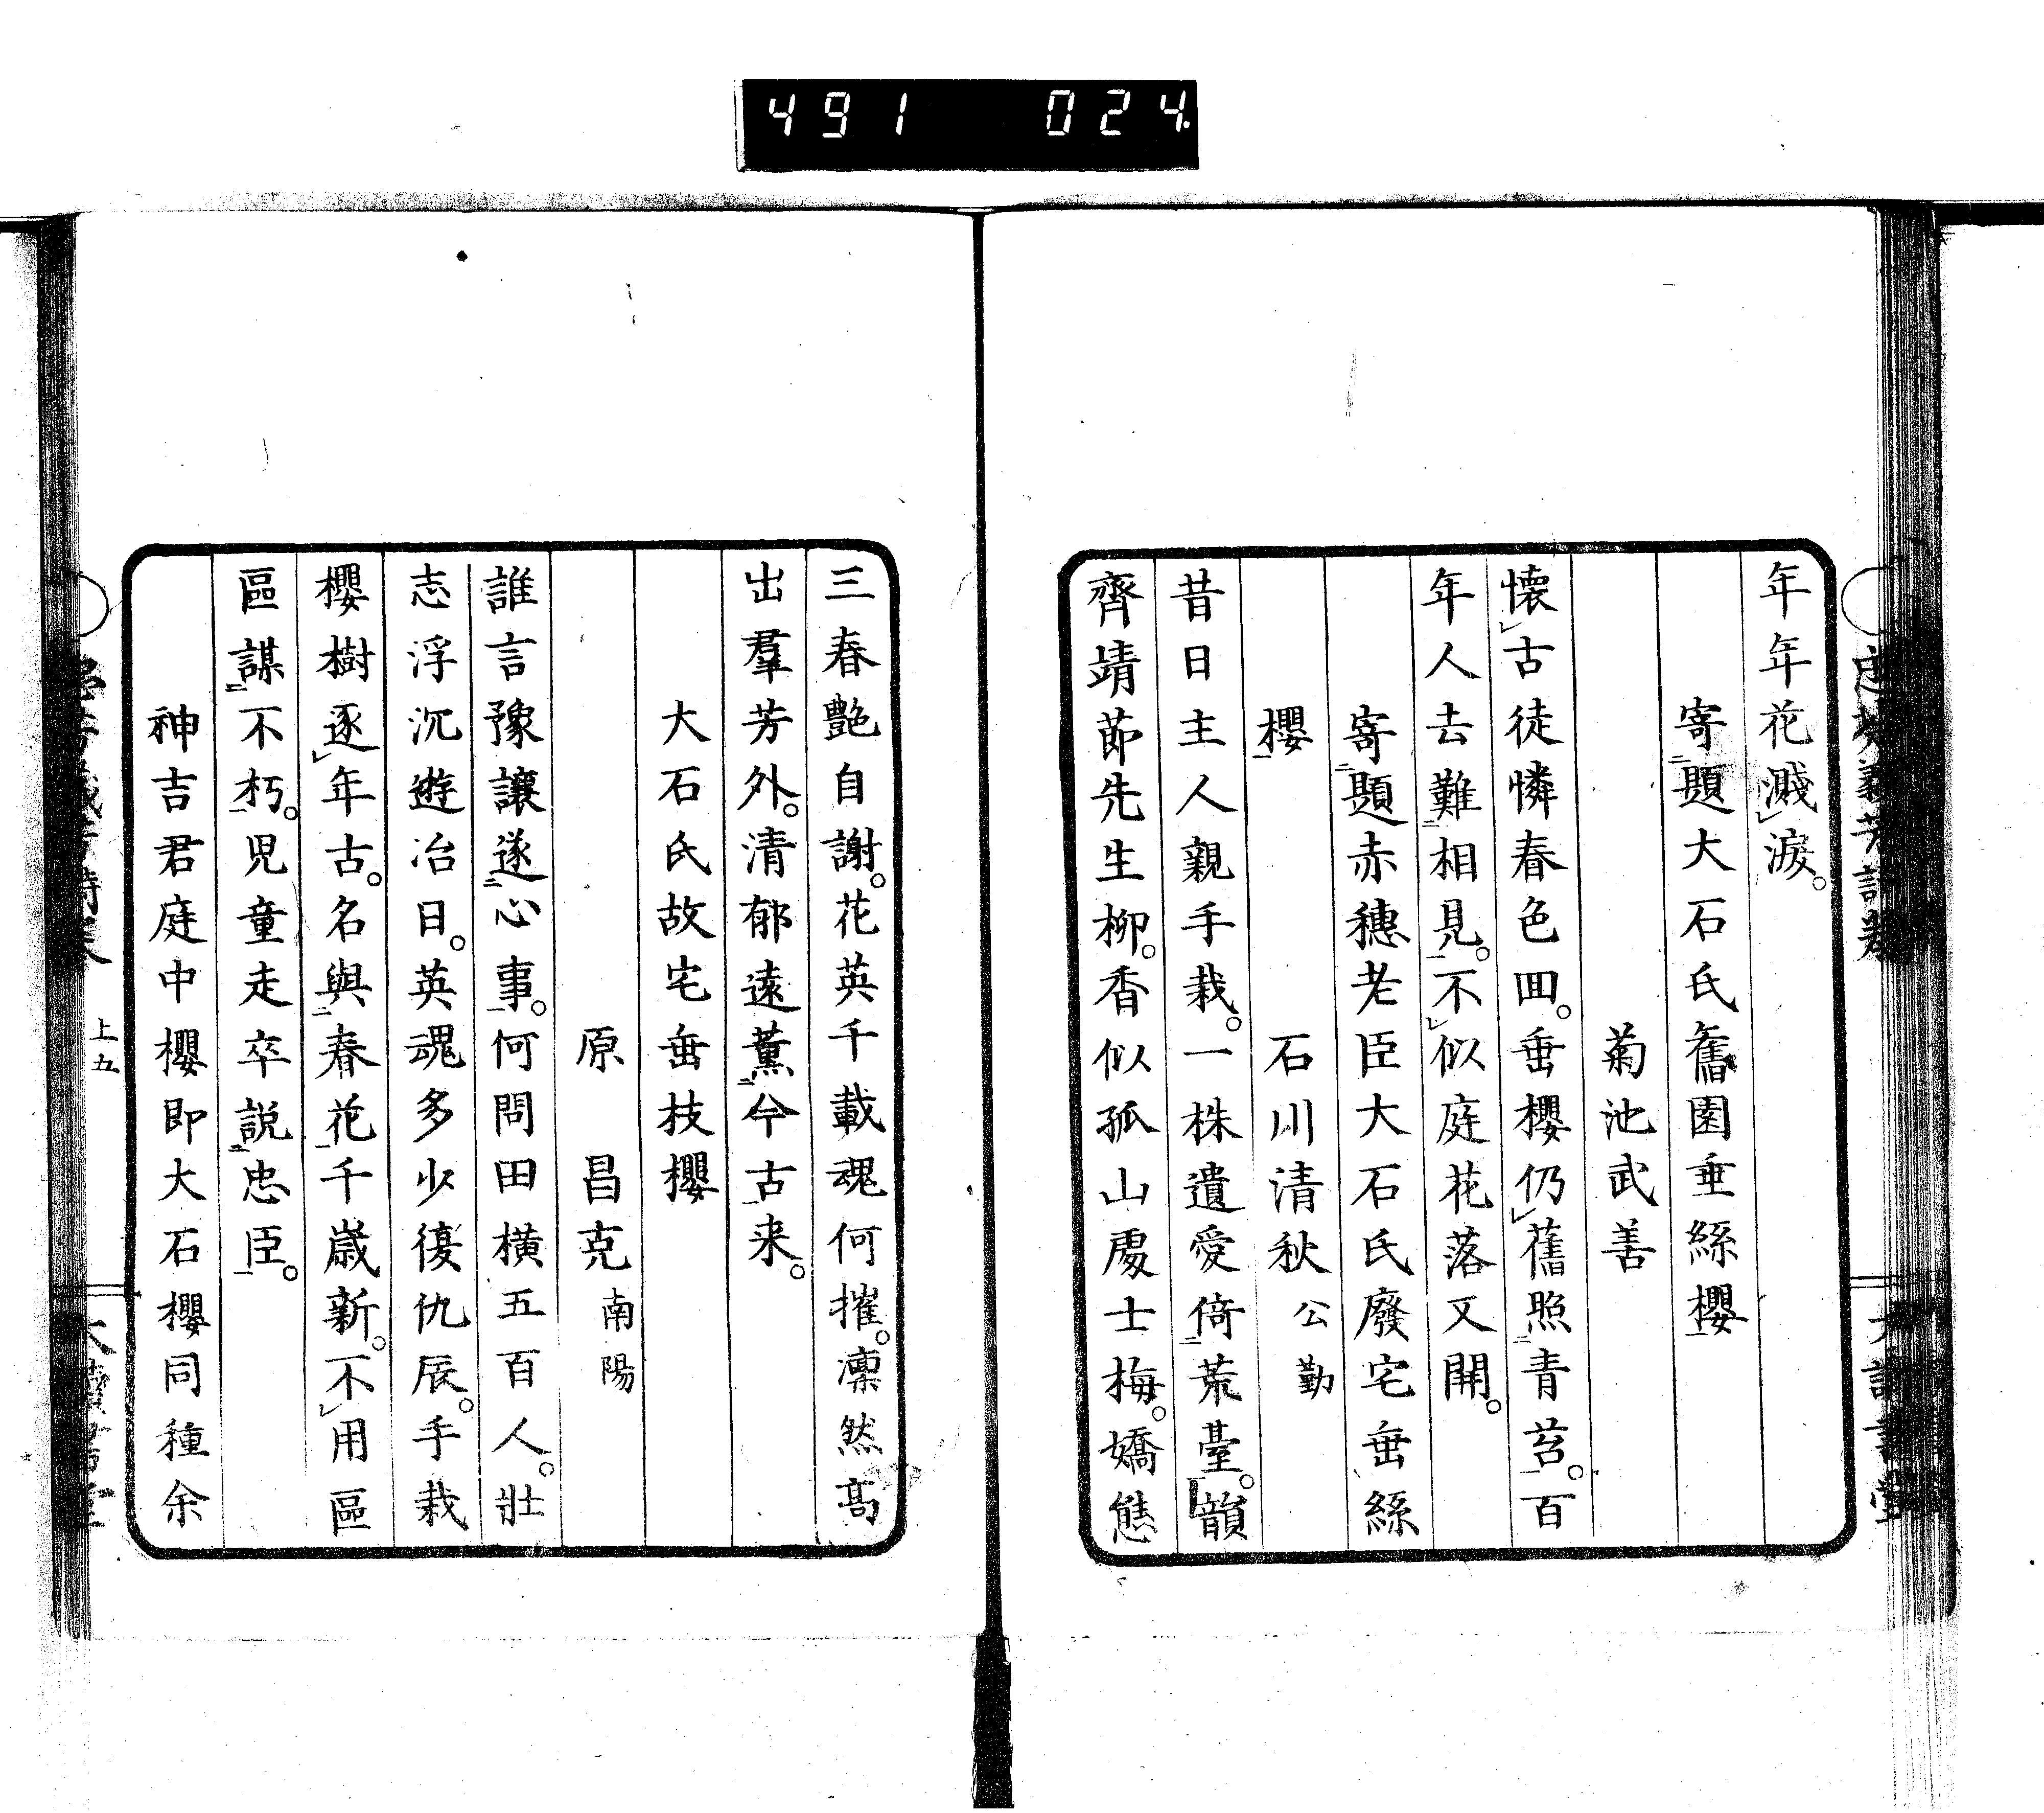 491 024
年年花濺淚。
寄題大石氏舊園垂絲櫻
菊池武善
懷古徒憐春色回。垂櫻仍舊照青苔。百
年人去難相見。不似庭花落又開。
寄題赤穗老臣大石氏廢宅垂絲
櫻 石川清秋 公勤
昔日主人親手栽。一株遺愛倚荒臺。韻
齊靖節先生柳。香似孤山處士梅。嬌態
三春艷自謝。花英千載魂何摧。凜然高
出羣芳外。清郁遠薰今古来。
大石氏故宅垂枝櫻
原 昌克 南陽
誰言豫讓遂心事。何問田橫五百人。壯
志浮沉遊冶日。英魂多少復仇辰。手栽
櫻樹逐年古。名與春花千歲新。不用區
區謀不朽。児童走卒説忠臣。
神吉君庭中櫻即大石櫻同種余
上五